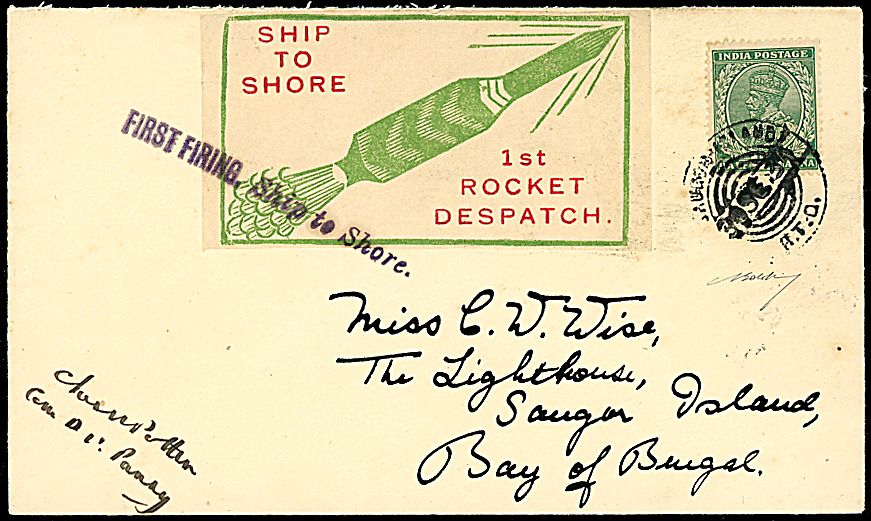 SHIP
TO
SHORE
1st
ROCKET
DESPATCH.
FIRST FIRING. Ship to Shore.
INDIA POSTAGE
Miss C. W. Wise,
The Lighthouse,
Saugor Island,
Bay of Bengal.